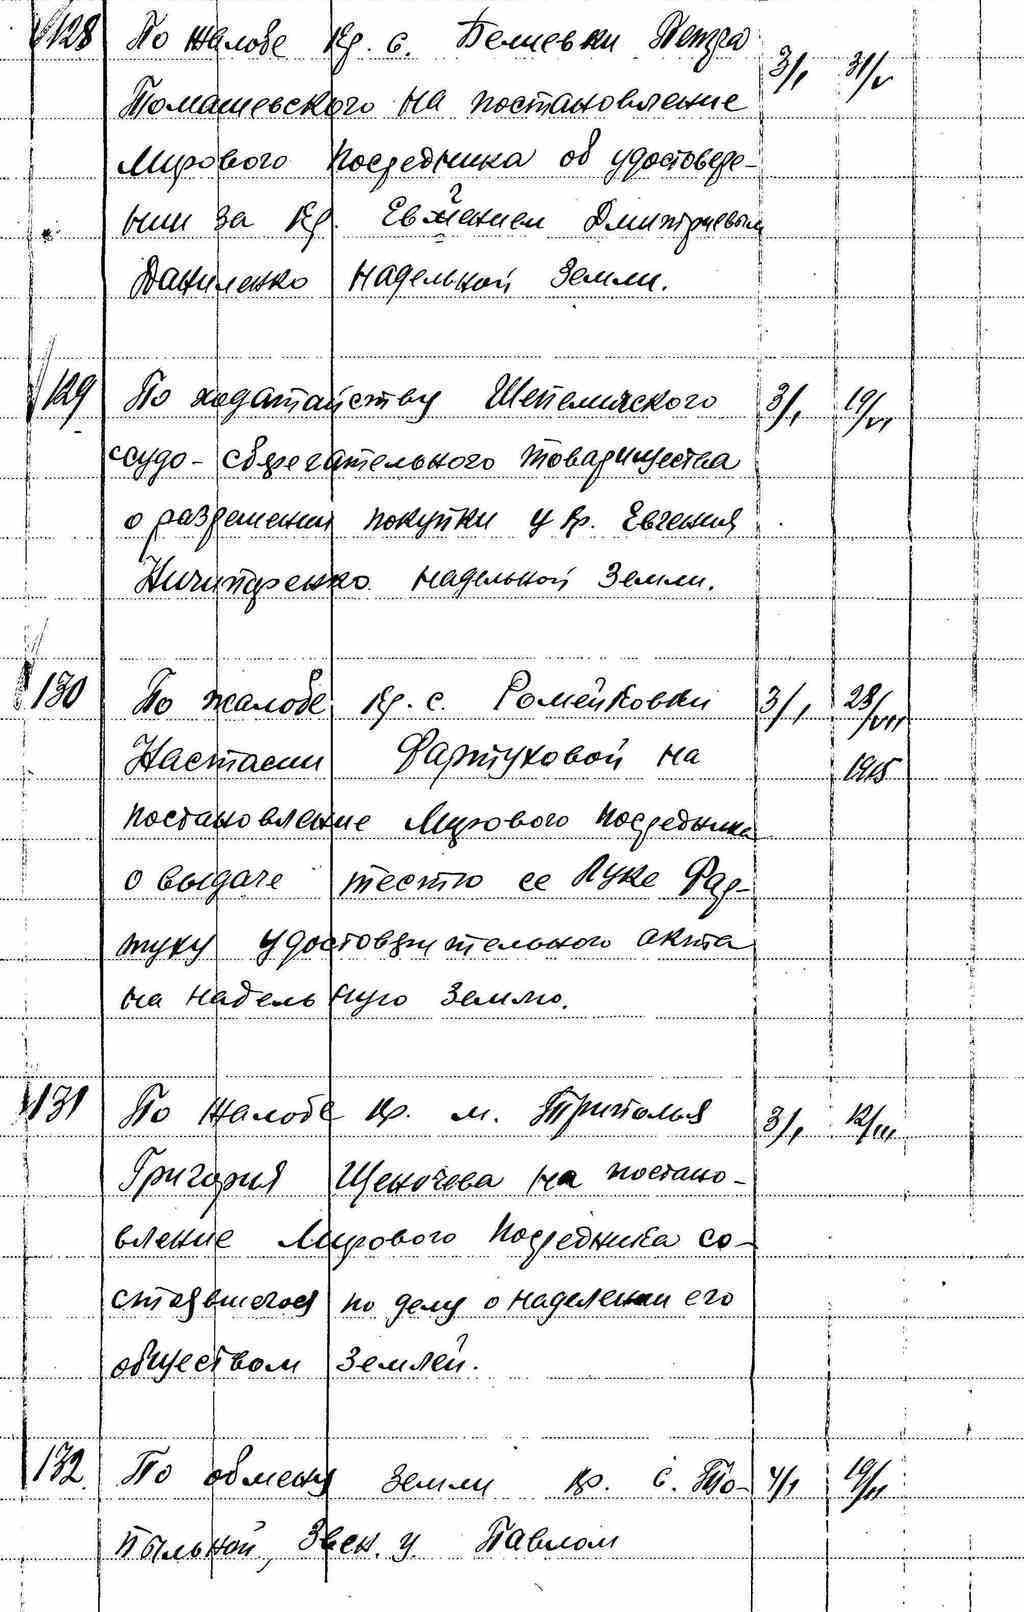 128 По жалобе кр. с. Белиевки Петра 3/I 31/V
Томашевского на постановление
Мирового Посредника об удостовере-
нии за кр. Евгением Дмитриевым
Даниленко надельной земли.
129 По ходатайству Шепелинского 3/I 19/VI
ссудо-сберегательного товарищества
о разрешении покупки у кр. Евгения
Ничипоренко надельной земли.
130 По жалобе кр. с. Ромейковки 3/I 28/VIII
Настасии Фартуховой на 1915
постановление Мирового Посредника
о выдаче тестю ее Луке Фар-
туху удостоверительного акта
на надельную землю.
131 По жалобе кр. м. Триполья 3/I 12/III
Григория на постано-
вление Мирового Посредника со-
стоявшегося по делу о наделении его
обществом землей.
132 По обмену земли кр. с. То- 4/I 19/II
пыльной, Звен. у. Павлом